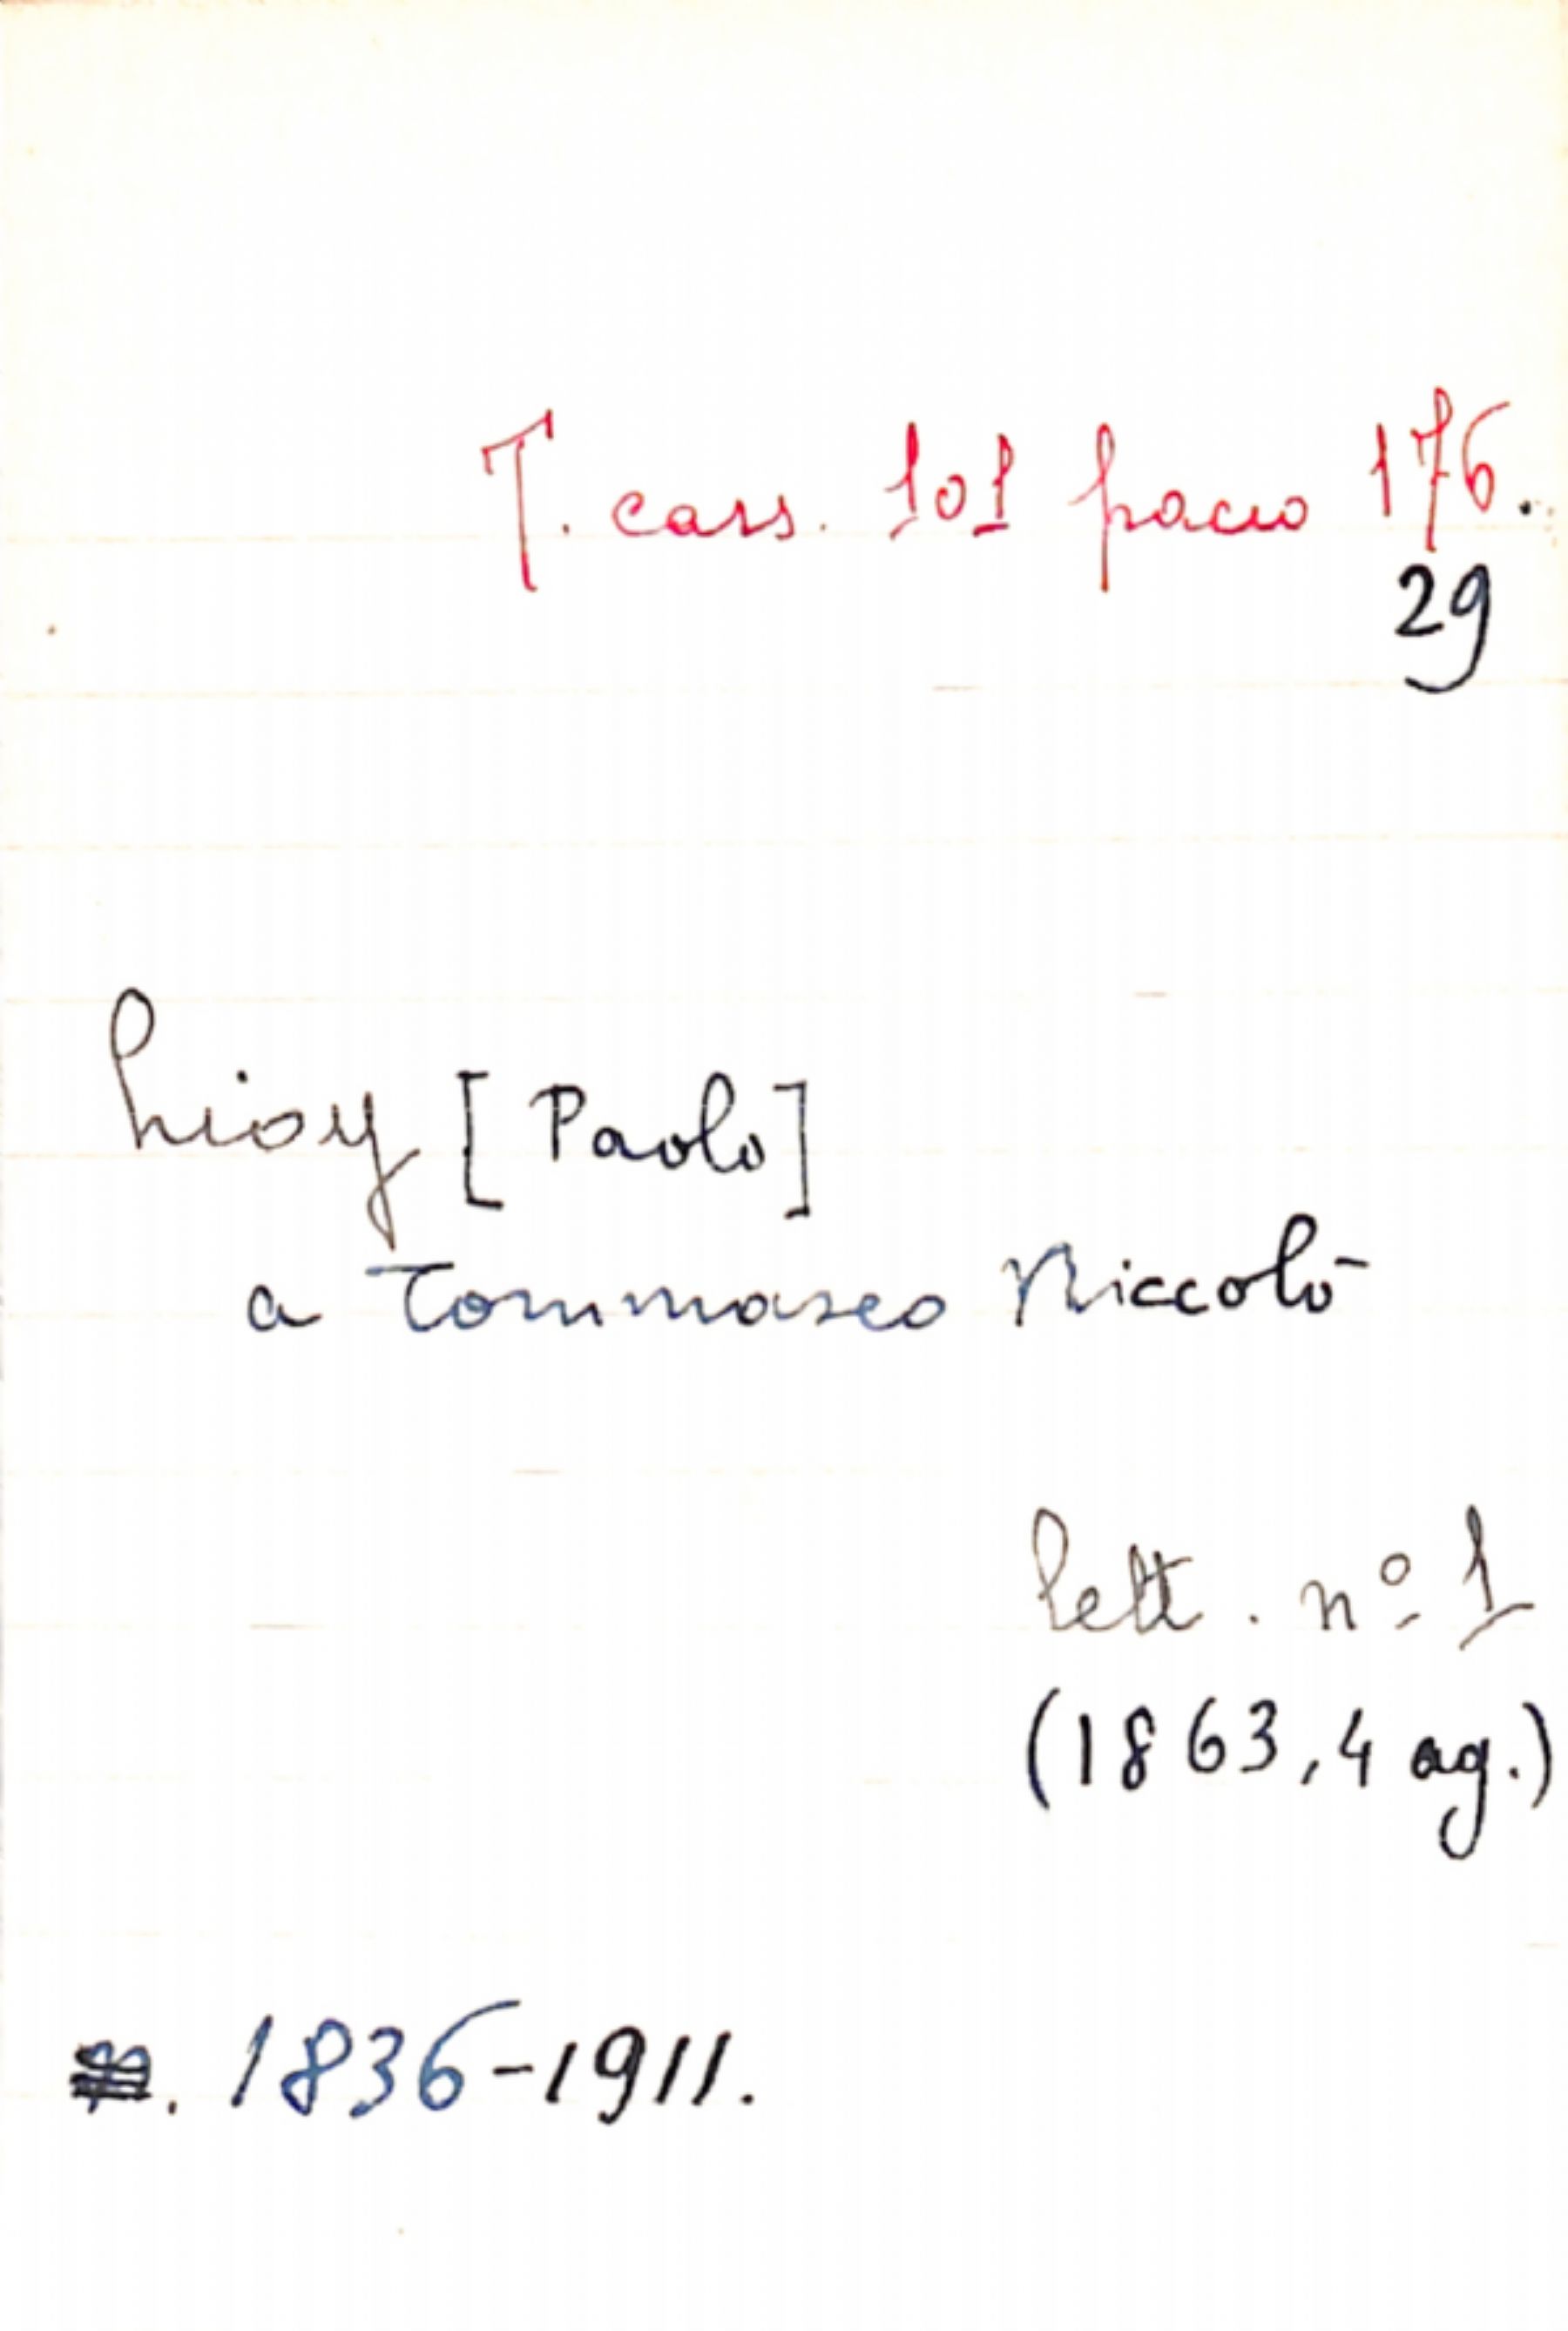 T. cass. 101 pacco 176.
29
Lioy [Paolo]
a Tommaseo Niccolò
lett. nº 1
(1863, 4 ag.)
. 1836-1911.